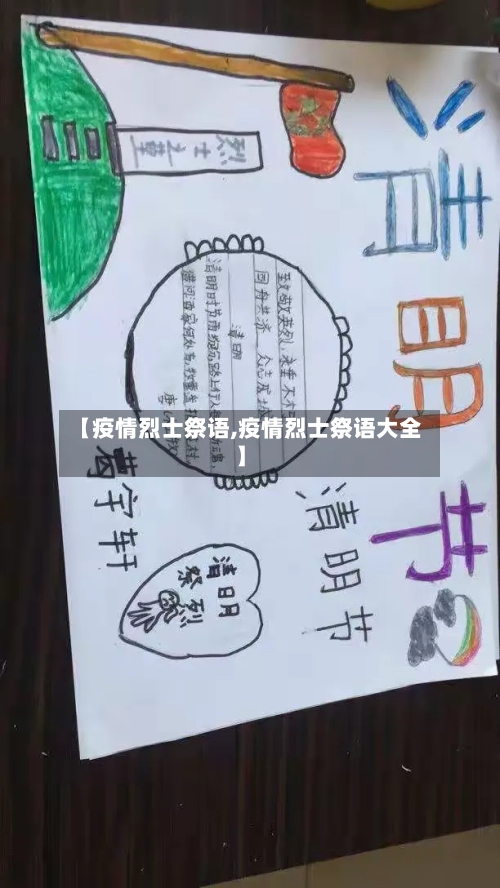 清明节
烈士之墓
致敬英烈,永垂不
同舟共济 众志成城
清明
清明时节雨纷纷,路上行人
借问酒家何处有,牧童
【疫情烈士祭语,疫情烈士祭语大全
】
宇轩
清明节
清明
祭烈